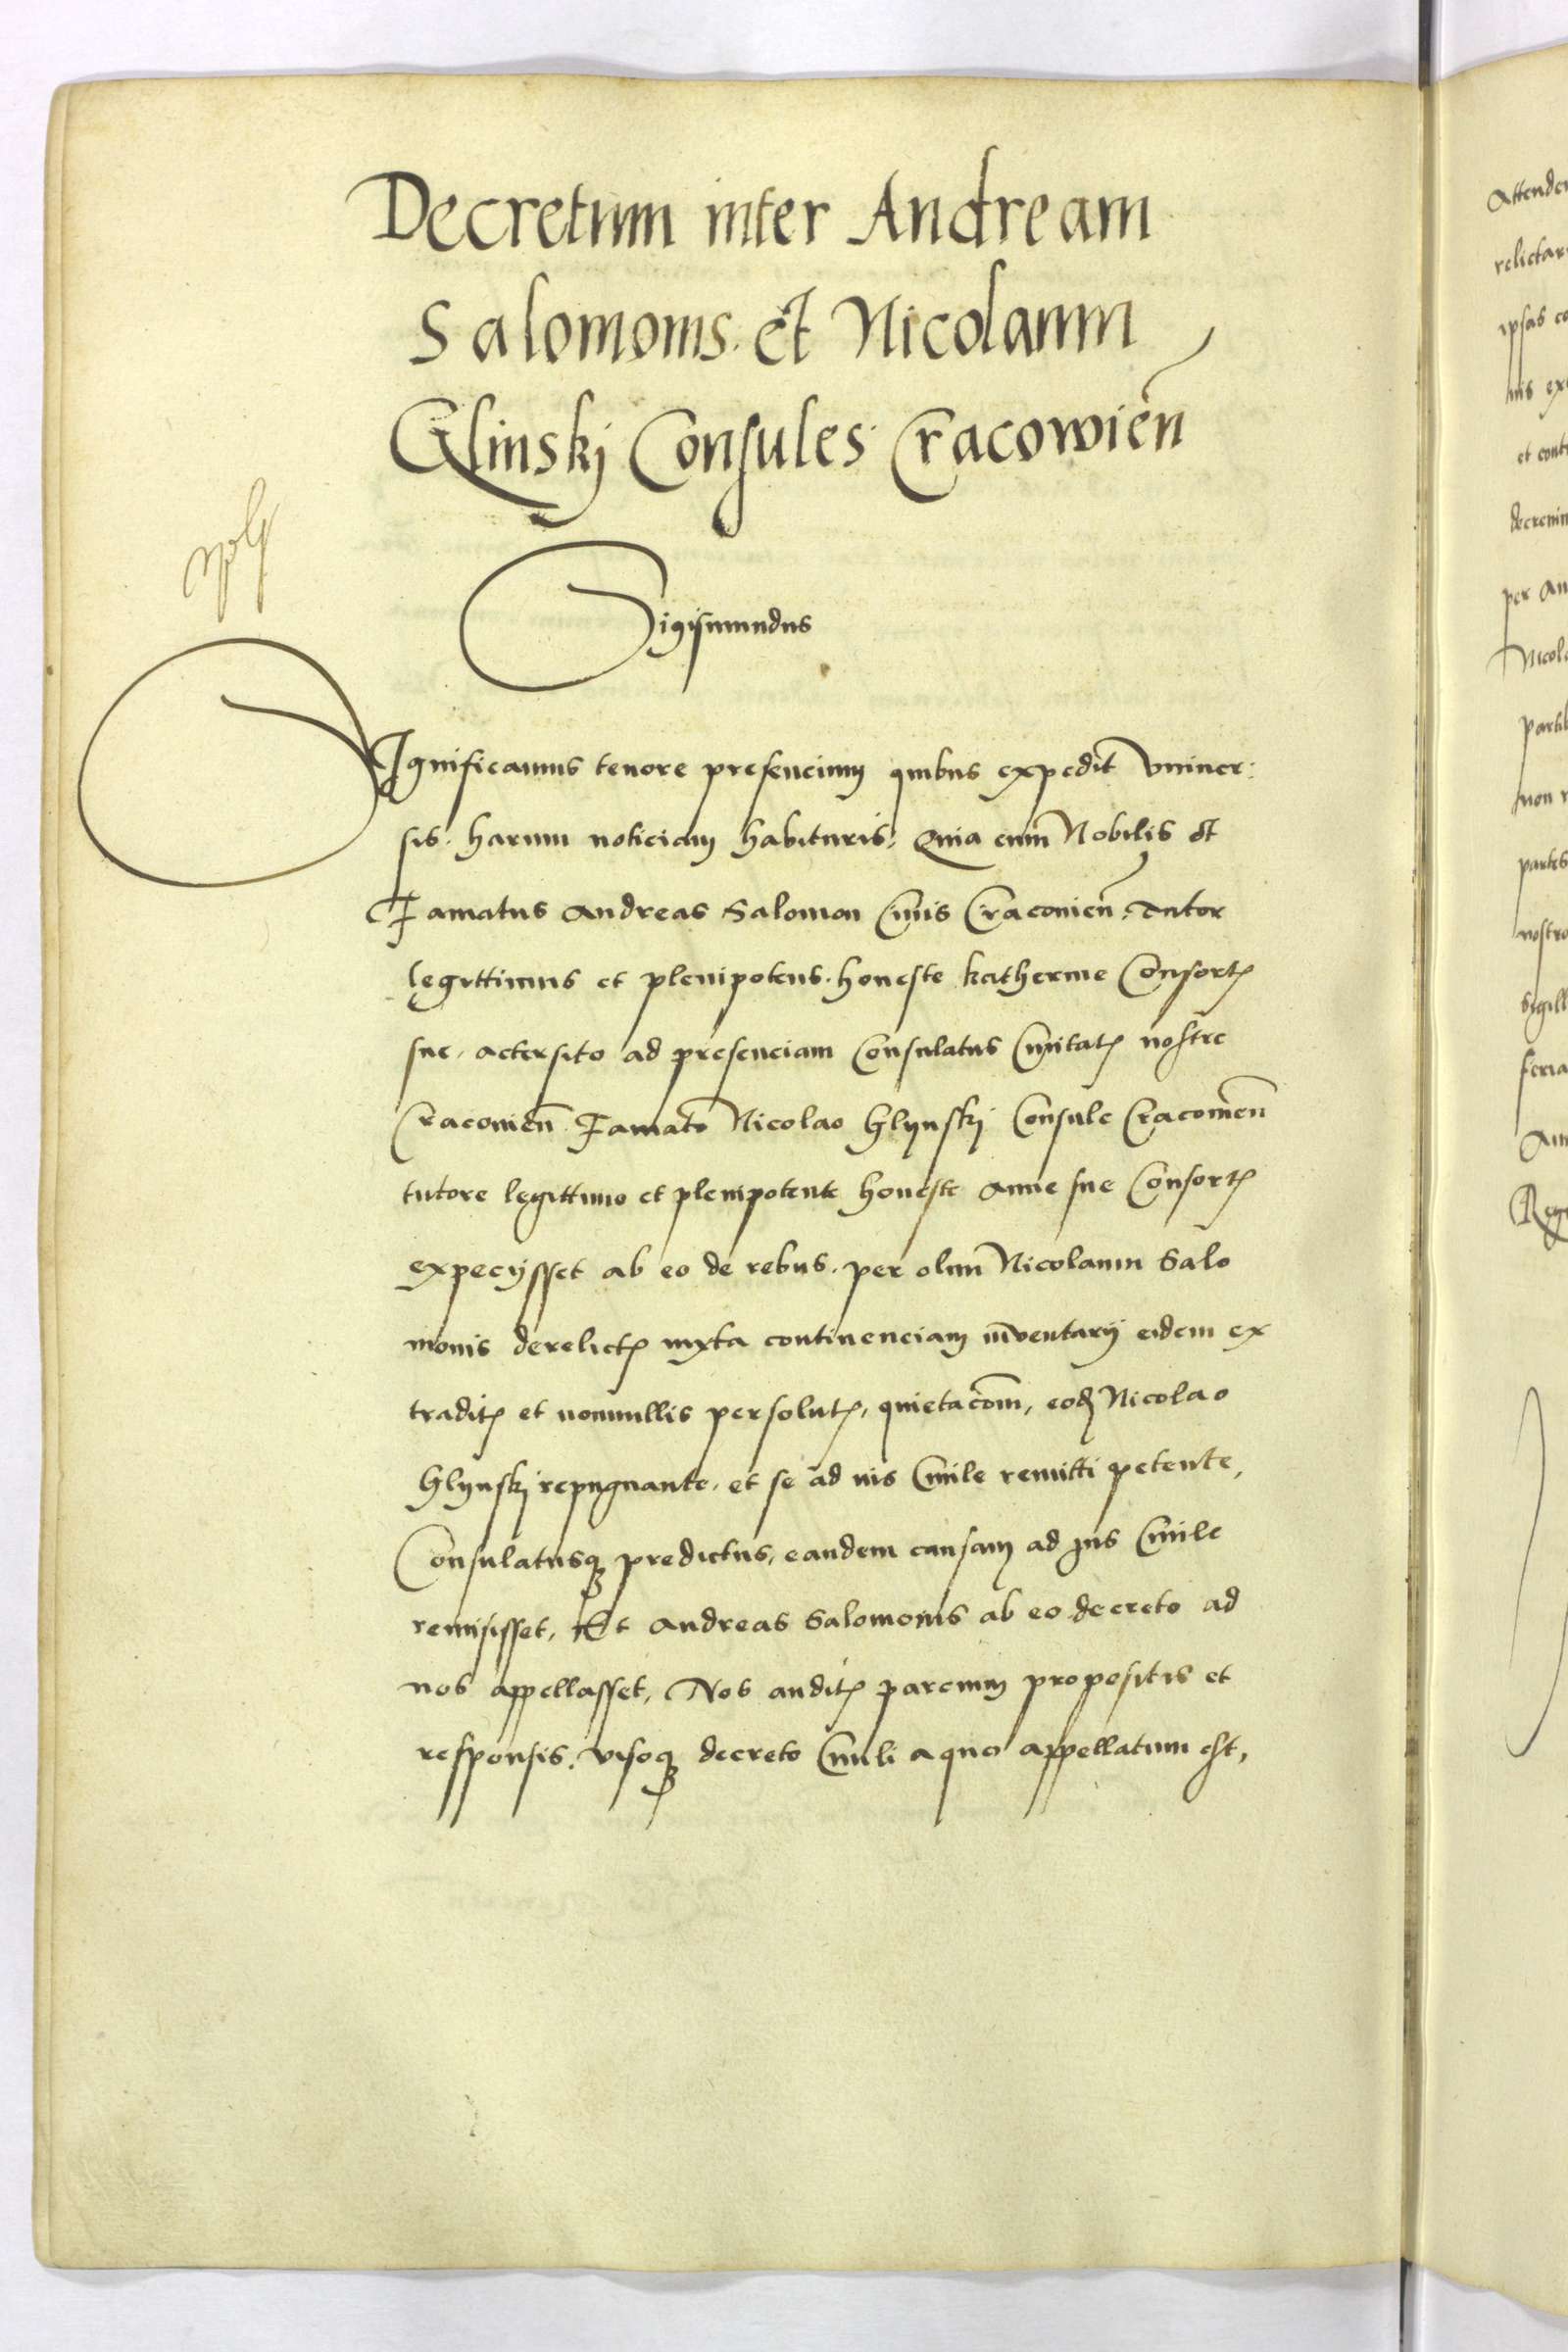 Decretum inter Andream
Salomonis et Nicolaum
Glinskj Consules Cracowien̄
Sigismundus
Significamus tenore presencium quibus expedit vniuer:
sis harum noticiam habituris, Quia cum Nobilis et
Famatus Andreas Salomon Ciuis Cracouien̄ Tutor
legittimus et plenipotens honeste Katherine Consortꝭ
sue, actersito ad presenciam Consulatus Ciuitatꝭ nostre
Cracouien̄ Famato Nicolao Hlynskj Consule Cracouien̄
tutore legittimo et plenipotente honeste Anne sue Consortꝭ
expecijsset ab eo de rebus per olim Nicolaum Salo
monis derelictꝭ iuxta continenciam inventarij eidem ex
traditꝭ et nonnullis persolutꝭ, quietacōm, eodꝭ Nicolao
Hlynskj repugnante, et se ad ius Ciuile remitti petente,
Consulatusqꝫ predictus, eandem causam ad ius Ciuile
remisisset, Et Andreas Salomonis ab eo decreto ad
nos appellasset, Nos auditꝭ parcium propositis et
responsis, visoqꝫ decreto Ciuili a quo appellatum est,
Attende
relictar
ipsas co
nis ex
et cont
decreuim
per An
Nicol
partib
non r
partes
nostro
Sigill
feria
Reg